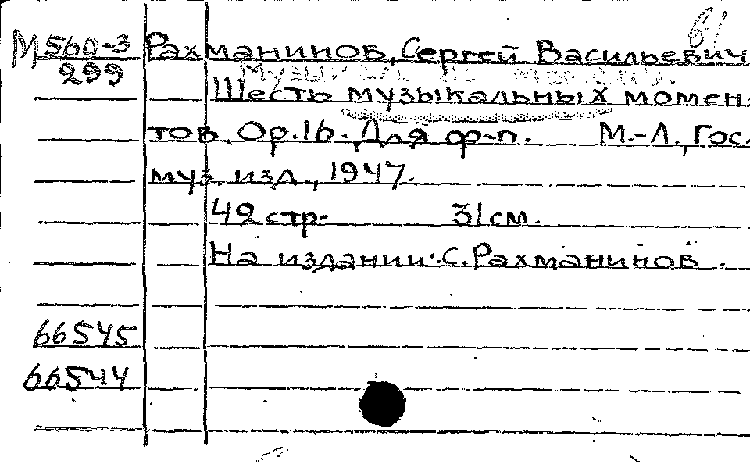 61
М560-3 Рахманинов, Сергей Васильевич
299
Шесть музыкальных момен-
тов. Op.16. Для ф-п. М.-Л., Гос.
муз. изд., 1947.
42 стр. 31 см.
На издании: С. Рахманинов.
66545
66544